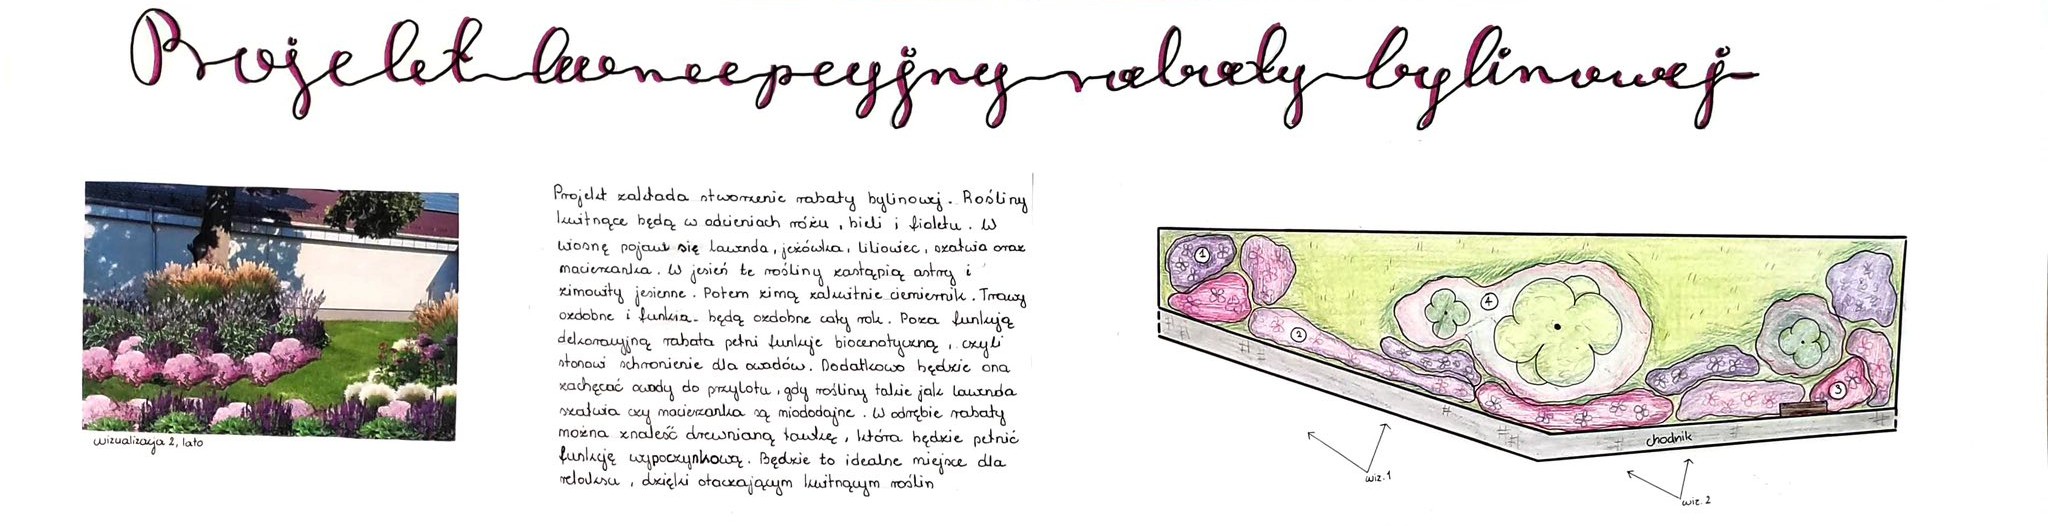 Projekt koncepcyjny rabaty bylinowej
Projekt zakłada stworzenie rabaty bylinowej. Rośliny
kwitnące będą w odcieniach różu, bieli i fioletu. W
wiosnę pojawi się lawenda, jeżówka, liliowiec, szałwia oraz
macierzanka. W jesień te rośliny zastąpią astry i
zimowity jesienne. Potem zimą zakwitnie ciemiernik. Trawy
ozdobne i funkia będą ozdobne cały rok. Poza funkcją
dekoracyjną rabata pełni funkcje biocenotyczną, czyli
stanowi schronienie dla owadów. Dodatkowo będzie ona
zachęcać owady do przylotu, gdy rośliny takie jak lawenda
szałwia czy macierzanka są miododajne. W odrębie rabaty
można znaleść drewnianą ławkę, która będzie pełnić
funkcję wypoczynkową. Będzie to idealne miejsce dla
relaksu, dzięki otaczającym kwitnącym roślin
wizualizacja 2, lato
1
2
4
3
chodnik
wiz. 1
wiz. 2